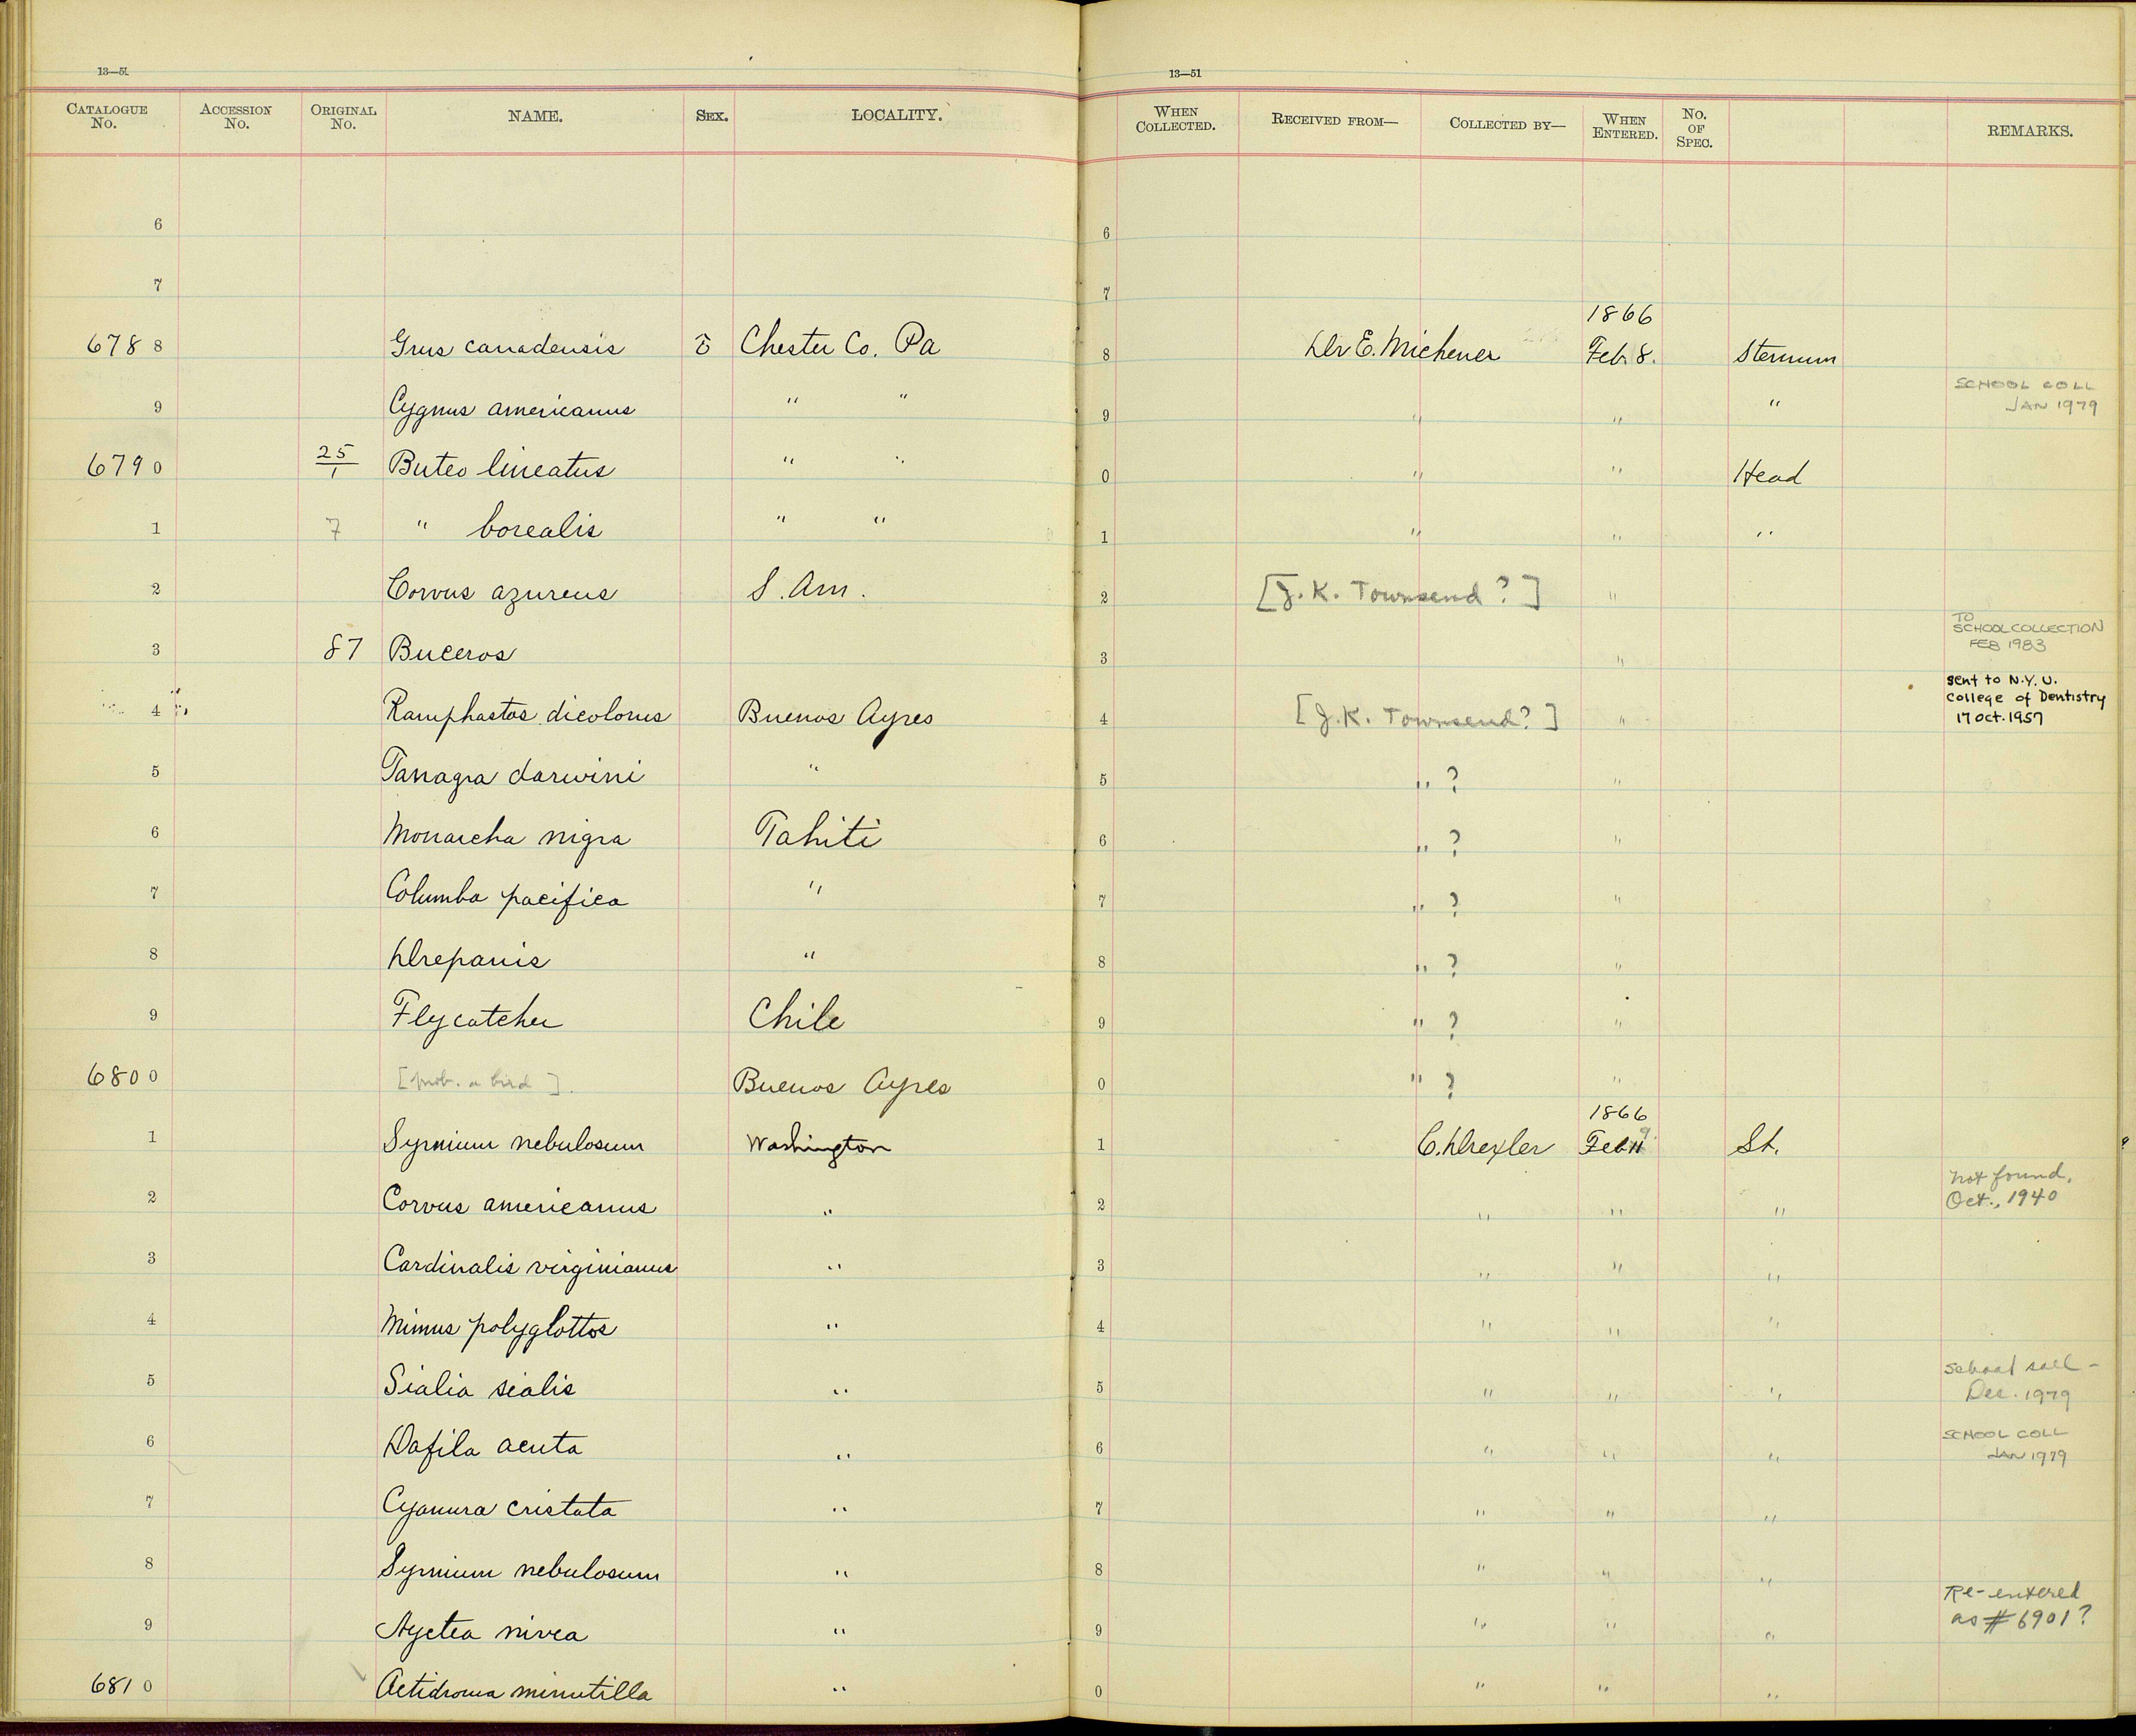 13—51
CATALOGUE No. ACCESSION No. ORIGINAL No. NAME. SEX. LOCALITY.
13—51
WHEN COLLECTED. RECEIVED FROM— COLLECTED BY— WHEN ENTERED. No. OF SPEC. REMARKS.
6 6
7 7
1866
6788 Grus canadensis Chester Co. Pa 8 Dr E. Michener Feb. 8. Sternum
9 Cygnus americanus " " 9 " " " SCHOOL COLL JAN 1979
6790 25/1 Buteo lineatus " " 0 " " Head
1 7 " borealis " " 1 " " "
2 Corvus azureus S. Am. 2 [J. K. Townsend?] "
3 87 Buceros 3 " TO SCHOOL COLLECTION FEB 1983
4 Ramphastos dicolorus Buenos Ayres 4 [J. K. Townsend?] " sent to N.Y.U. College of Dentistry 17 Oct. 1957
5 Tanagra darwini " 5 " ? "
6 Monarcha nigra Tahiti 6 " ? "
7 Columba pacifica " 7 " ? "
8 Drepanis " 8 " ? "
9 Flycatcher Chile 9 " ? "
6800 [prob. a bird] Buenos Ayres 0 " ? "
1866
1 Syrnium nebulosum Washington 1 C. Drexler Feb St.
2 Corvus americanus " 2 " " " not found, Oct., 1940
3 Cardinalis virginianus " 3 " " "
4 Mimus polyglottos " 4 " " "
5 Sialia sialis " 5 " " " School coll - Dec. 1979
6 Dafila acuta " 6 " " " SCHOOL COLL JAN 1979
7 Cyanura cristata " 7 " " "
8 Syrnium nebulosum " 8 " " "
9 Nyctea nivea " 9 " " " Re-entered as #6901?
6810 Actidroma minutilla " 0 " " "